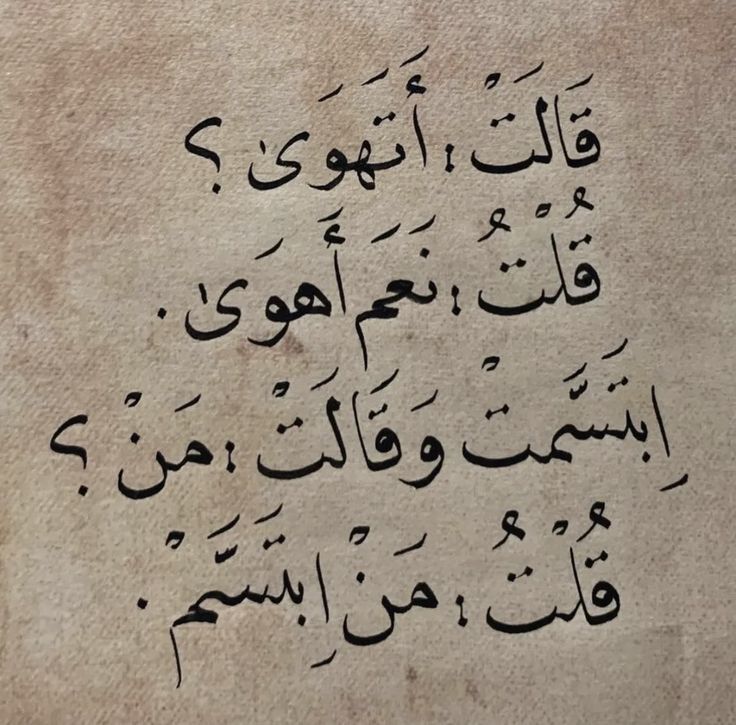 قَالَتْ : أَتَهَوَىٰ ؟
قُلْتُ : نَعَم أَهوَىٰ .
اِبتَسَّمتْ وَقَالَتْ : مَنْ ؟
قُلْتُ : مَنْ اِبتَسَّمْ .